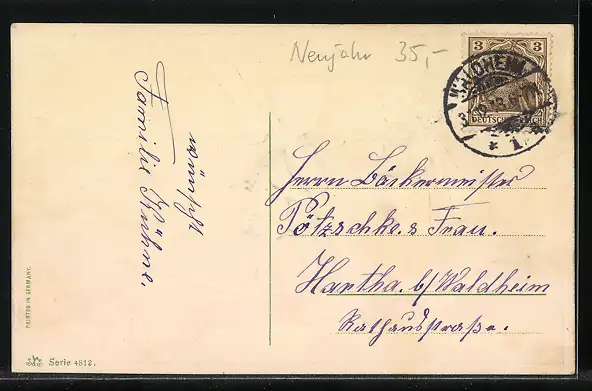 Neujahr 35,-
3 3
DEUTSCHES REICH
WALDHEIM
* 1
wünscht
Familie Kühne.
Herrn Bäckermeister
Pötzschke. s Frau.
Hartha. b/Waldheim
Rathausstraße.
PRINTED IN GERMANY.
Serie 4812.